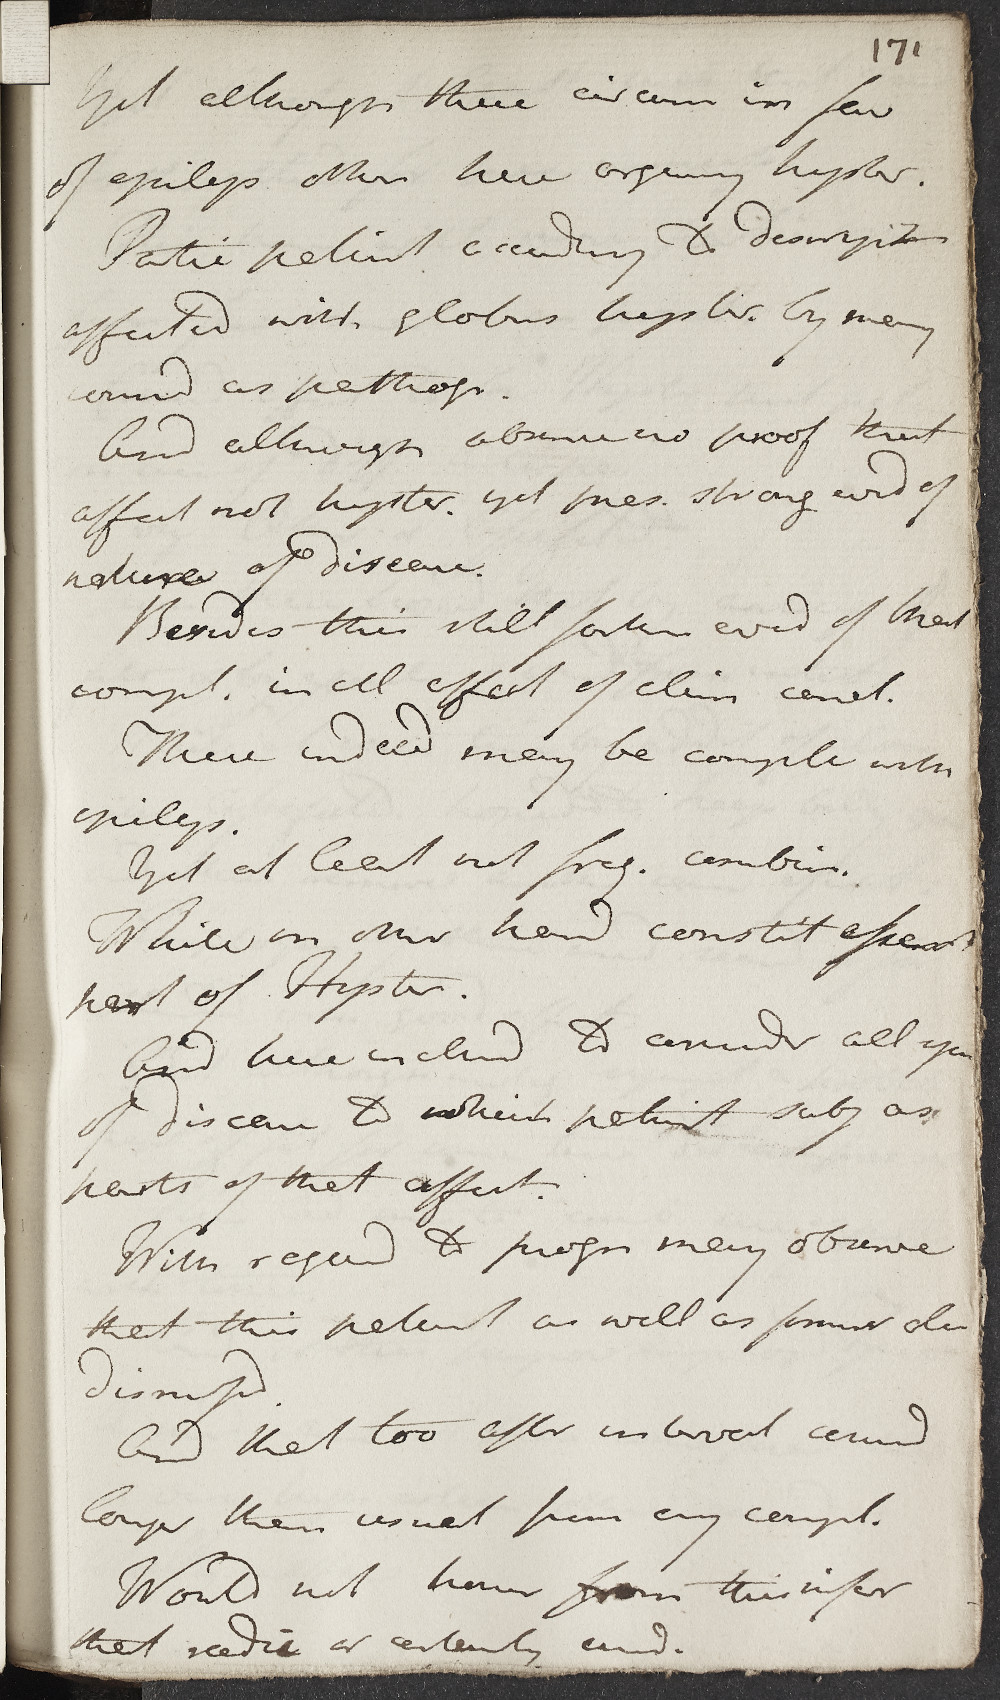 171
Yet although these circum in fav
of epileps others here arguing hyster.
Partic patient according to descript
affected with globus hyster. by many
consid as pathogn.
And although absence no proof that
affect not hyster. yet pres. strong evid of
nature of disease.
Besides this still farther evid of that
compl. in all affect of alim canal.
These indeed may be comple with
epileps.
Yet at least not freq. combin.
While on other hand constit essent
part of Hyster.
And here inclind to consider all
of disease to which patient subj as
parts of that affect.
With regard to progn may observe
that this patient as well as former
dismissd.
And that too after interval consid
longer than usual from any compl.
Would not however from this infer
that radic or certainly cured.